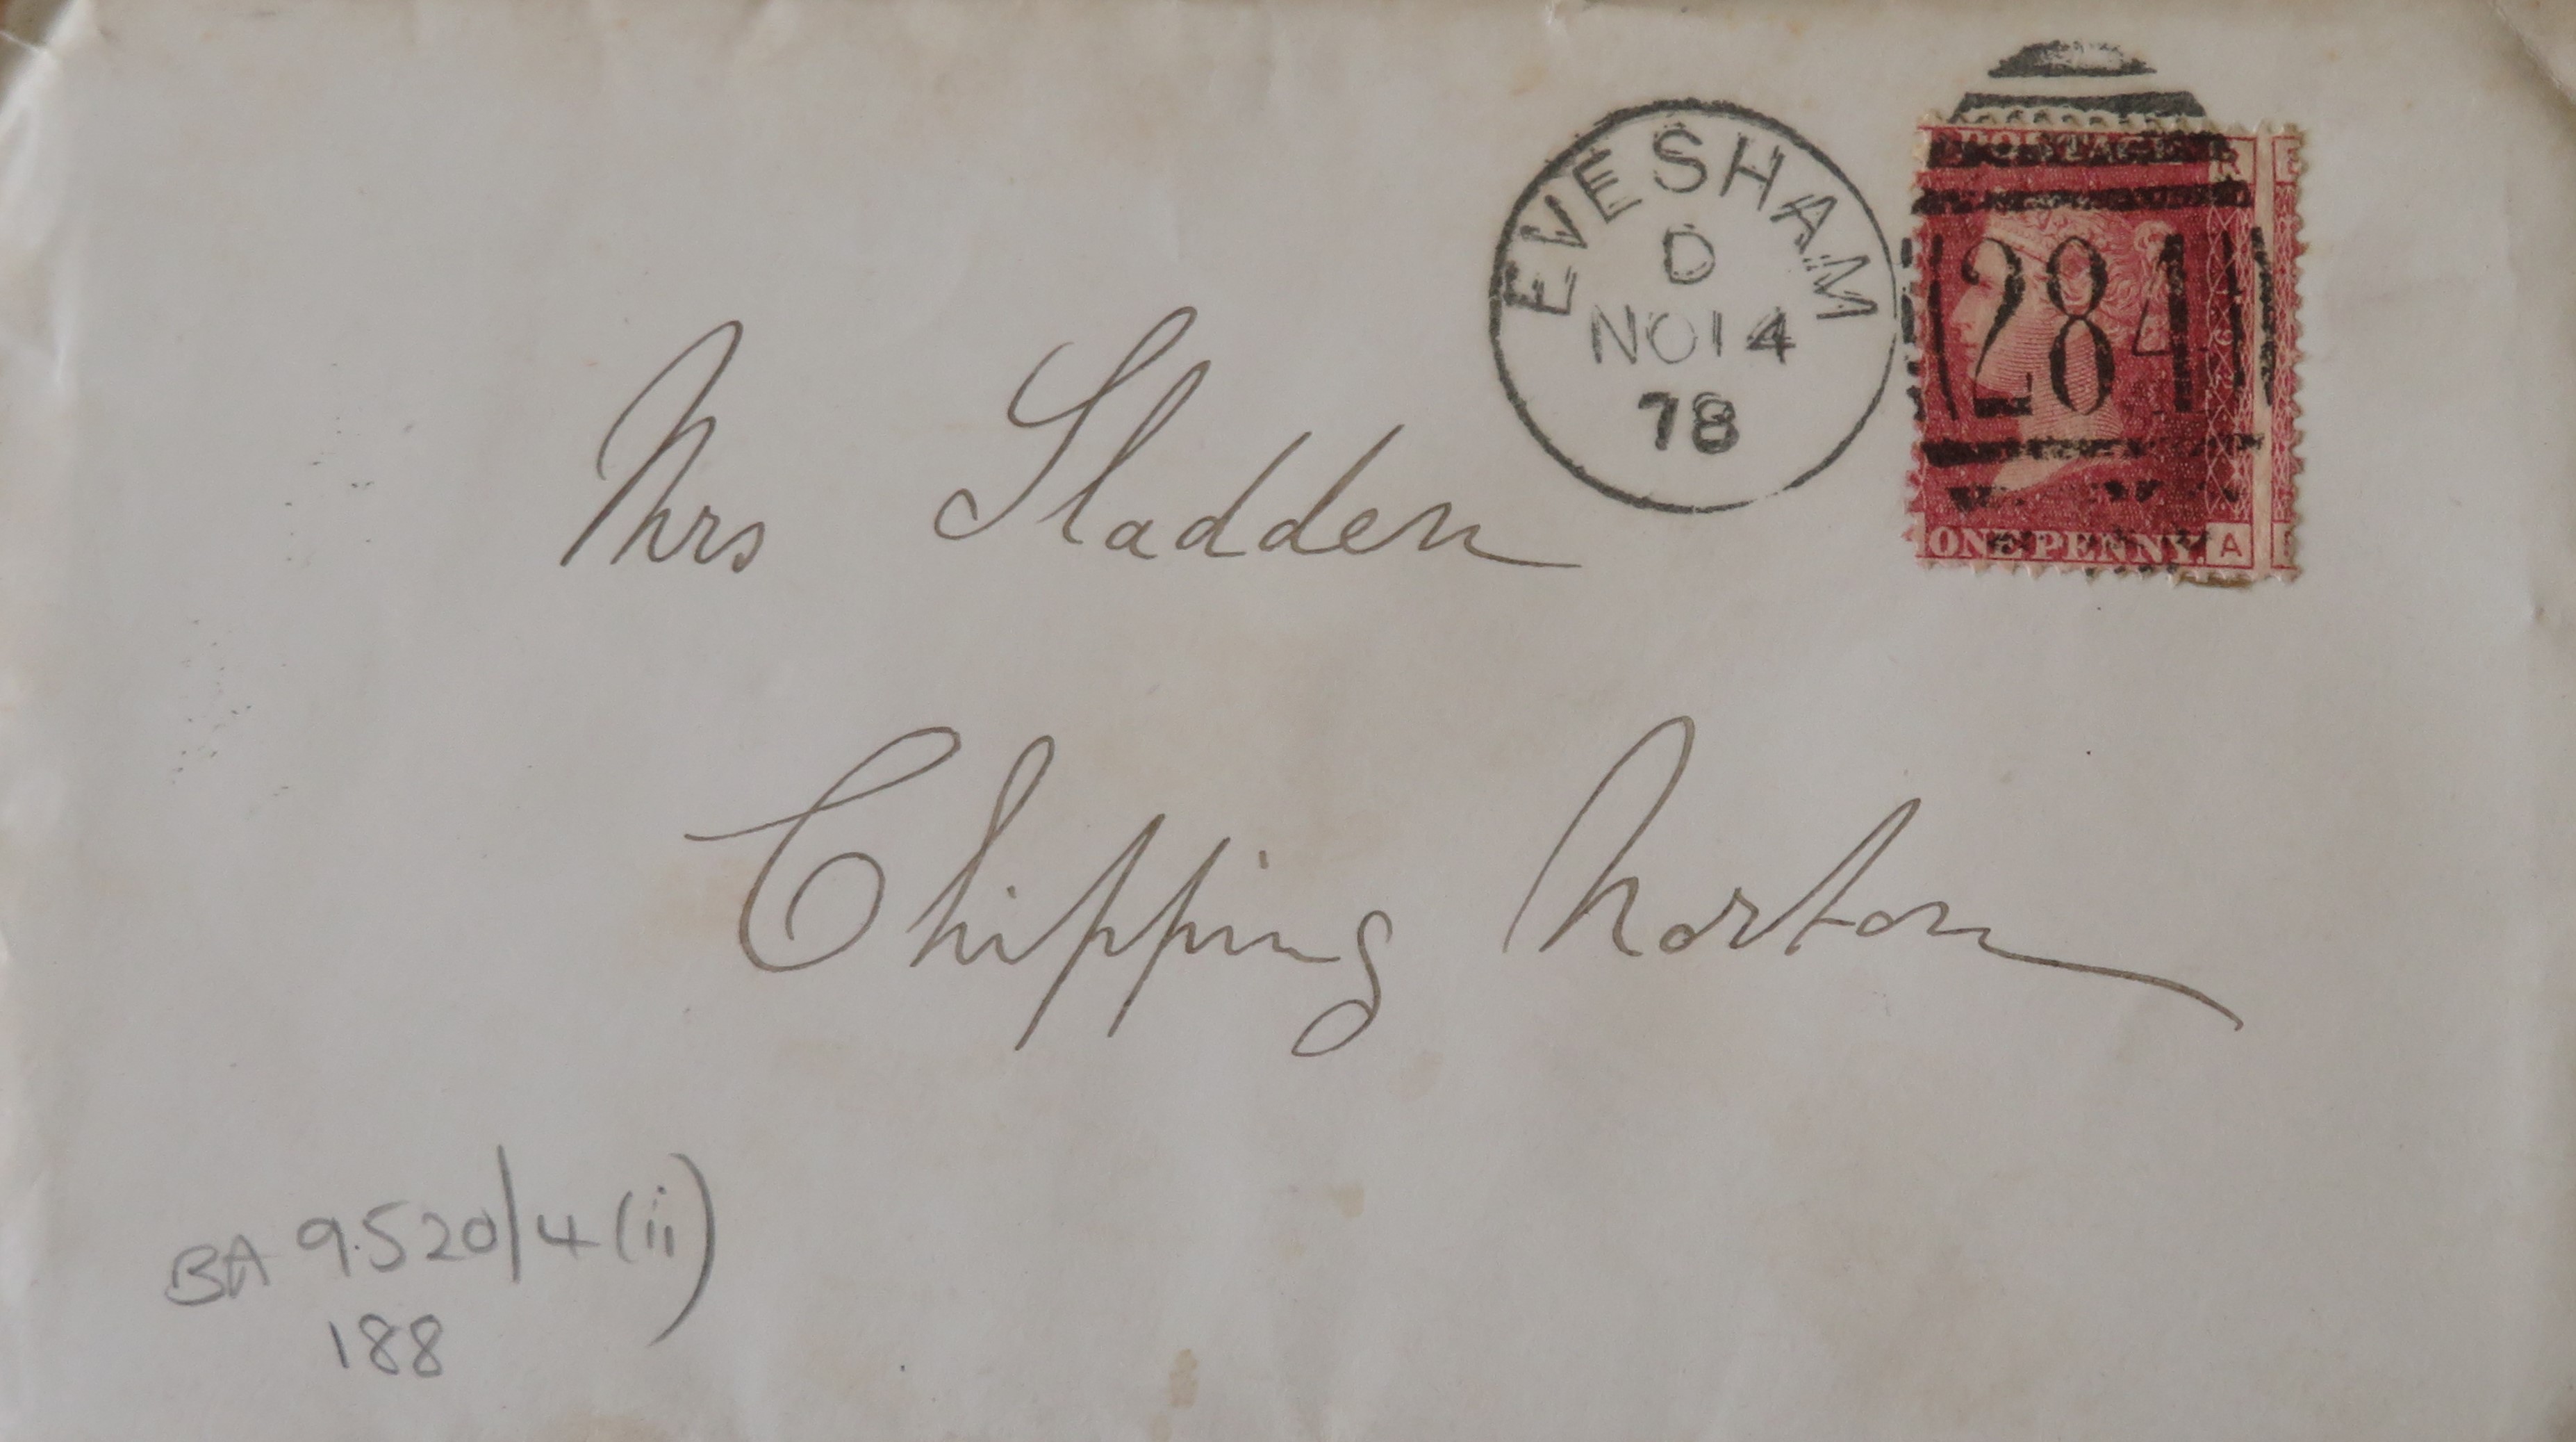 EVESHAM
D
NO 14
78
POSTAGE R E
284
ONE PENNY. A
Mrs Sladden
Chipping Norton
BA 9520/4 (ii)
188